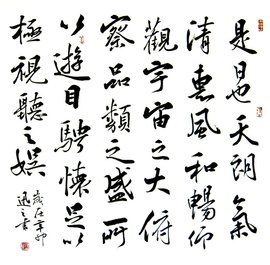 是日也天朗氣
清惠風和暢仰
觀宇宙之大俯
察品類之盛所
以遊目騁懷足以
極視聽之娛
歲在辛卯
之書